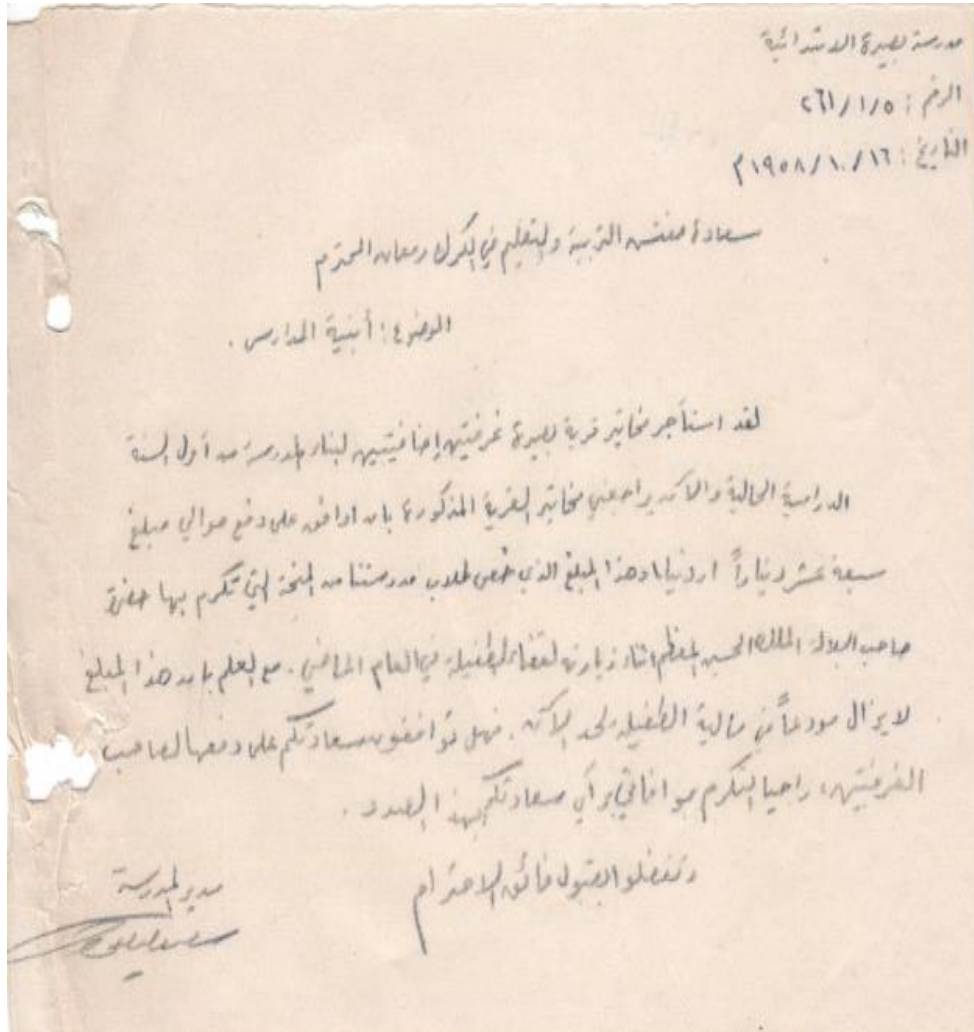 مدرسة بصيرة الابتدائية
الرقم : ٢٦١/١/٥
التاريخ : ١٩٥٨/١٠/١٦م
سعادة مفتش التربية والتعليم في الكرك ومعان المحترم
الموضوع : أبنية المدارس .
لقد استأجر مخاتير قرية بصيرة غرفتين إضافيتين لبناء المدرسة من أول السنة
الدراسية الحالية والآن يراجعني مخاتير القرية المذكورة بان اوافق على دفع حوالي مبلغ
سبعة عشر ديناراً اردنيا وهذا المبلغ الذي خص طلاب مدرستنا من المنحة التي تكرم بها حضرة
صاحب الجلالة الملك الحسين المعظم اثناء زيارته لقضاء الطفيلة في العام الماضي . مع العلم بان هذا المبلغ
لا يزال مودعاً في مالية الطفيلة لحد الآن . فهل توافقون سعادتكم على دفعها لصاحب
الغرفتين، راجيا التكرم موافاتي برأي سعادتكم بهذا الصدد .
وتفضلوا بقبول فائق الاحترام
مدير المدرسة